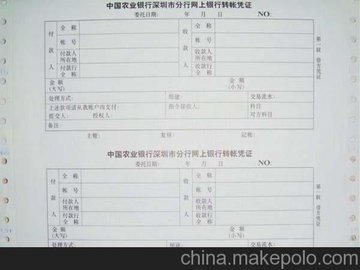 中国农业银行深圳市分行网上银行转帐凭证
委托日期: 年 月 日 NO:
付款人 全称 收款人 全称
帐号 帐号
付款人所在地 收款人所在地
付款行全称 收款行全称
金额(大写) 金额(小写)
处理方式: 用途: 交易流水:
上述款项请从我帐户内支付: 指令接收人: 科目
提交人: 授权人: 对方科目
备注:
主管: 复核 记帐:
中国农业银行深圳市分行网上银行转帐凭证
委托日期: 年 月 日 NO:
付款人 全称 收款人 全称
帐号 帐号
付款人所在地 收款人所在地
付款行全称 收款行全称
金额(大写) 金额(小写)
处理方式: 用途: 交易流水:
china.makepolo.com